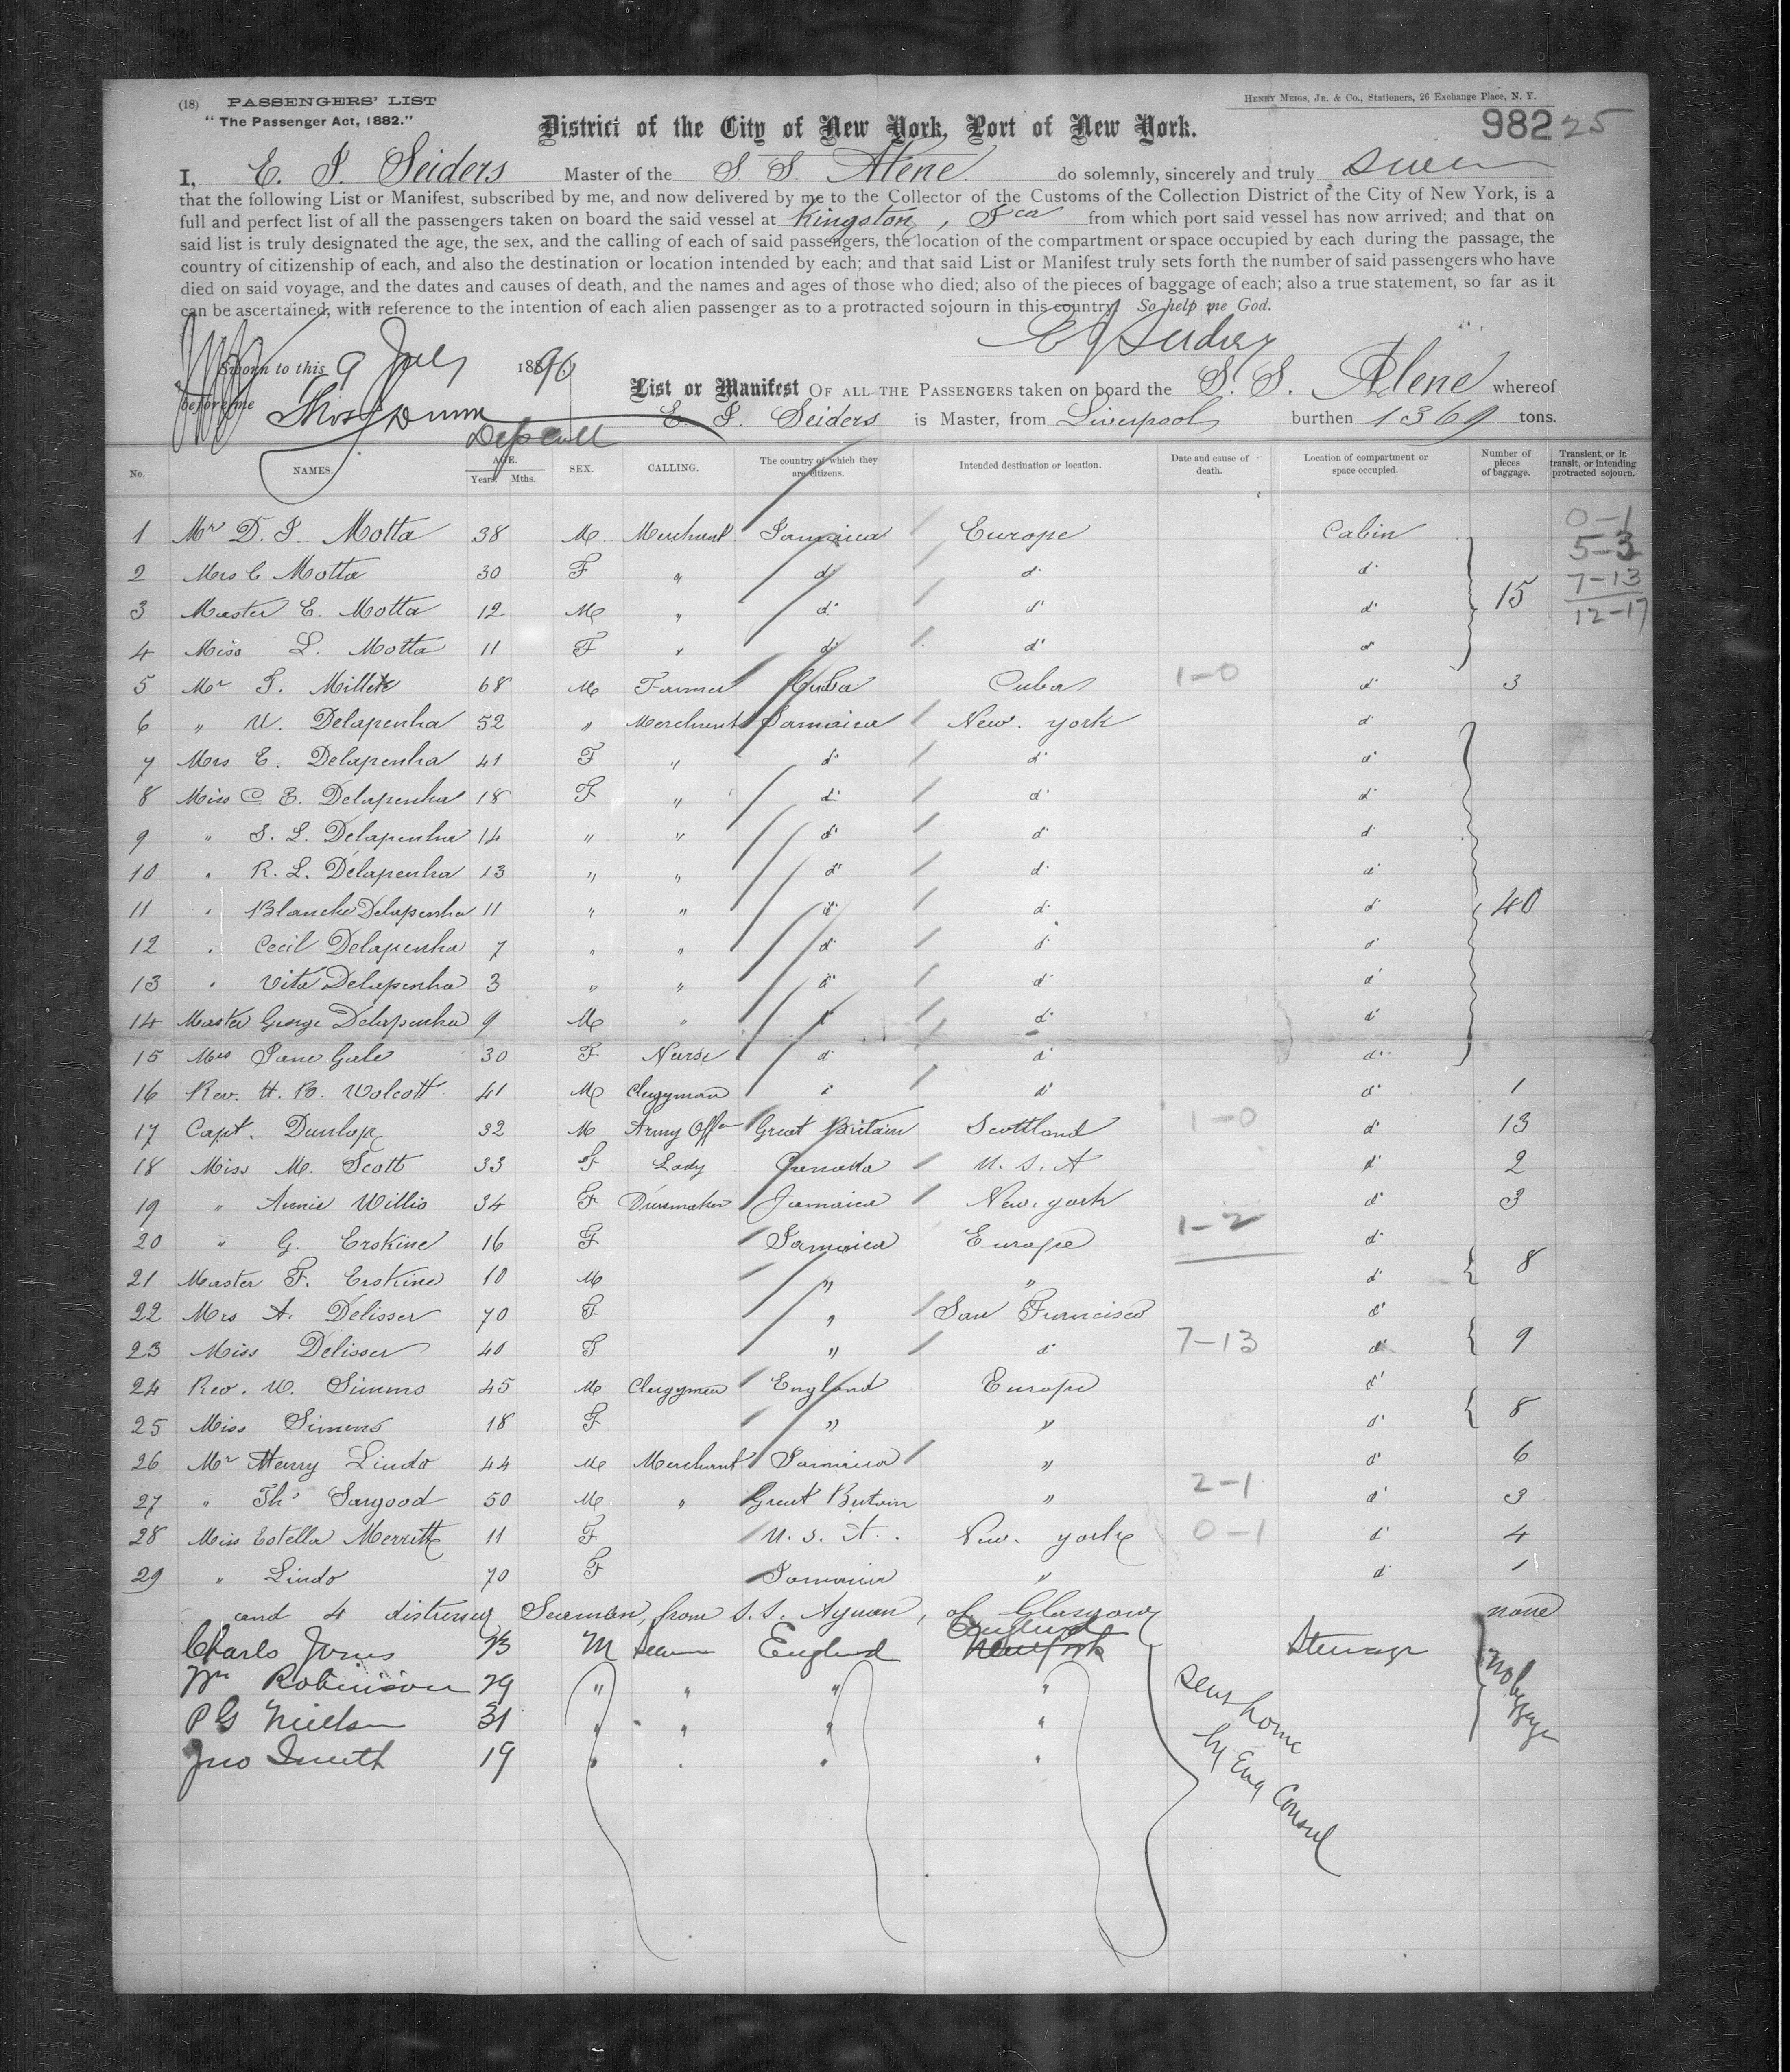 (18) PASSENGERS' LIST
"The Passenger Act, 1882."
HENRY MEIGS, JR. & CO., Stationers, 26 Exchange Place, N. Y.
District of the City of New York, Port of New York.
982 25
I, E. J. Seiders Master of the S. S. Alene do solemnly, sincerely and truly swear
that the following List or Manifest, subscribed by me, and now delivered by me to the Collector of the Customs of the Collection District of the City of New York, is a
full and perfect list of all the passengers taken on board the said vessel at Kingston, Jca from which port said vessel has now arrived; and that on
said list is truly designated the age, the sex, and the calling of each of said passengers, the location of the compartment or space occupied by each during the passage, the
country of citizenship of each, and also the destination or location intended by each; and that said List or Manifest truly sets forth the number of said passengers who have
died on said voyage, and the dates and causes of death, and the names and ages of those who died; also of the pieces of baggage of each; also a true statement, so far as it
can be ascertained, with reference to the intention of each alien passenger as to a protracted sojourn in this country. So help me God.
E J Seiders
Sworn to this 9 July 1890
before me Thos J Dunn
List or Manifest OF ALL THE PASSENGERS taken on board the S. S. Alene whereof
E. J. Seiders is Master, from Liverpool burthen 1369 tons.
No. NAMES. AGE. Years. Mths. SEX. CALLING. The country of which they are citizens. Intended destination or location. Date and cause of death. Location of compartment or space occupied. Number of pieces of baggage. Transient, or in transit, or intending protracted sojourn.
0-1
1 Mr D. J. Motta 38 M Merchant Jamaica Europe Cabin
5-3
2 Mrs C Motta 30 F " do do do
7-13
3 Master E. Motta 12 M " do do do 15
12-17
4 Miss L. Motta 11 F " do do do
5 Mr J. 68 M Farmer Cuba Cuba 1-0 do 3
6 " U. Delapenha 52 " Merchant Jamaica New York do
7 Mrs E. Delapenha 41 F " do do do
8 Miss C. E. Delapenha 18 F " do do do
9 " S. L. Delapenha 14 " " do do do
10 " R. L. Delapenha 13 " " do do do
11 " Blanche Delapenha 11 " " do do do 40
12 " Cecil Delapenha 7 " " do do do
13 " Vita Delapenha 3 " " do do do
14 Master George Delapenha 9 M " do do do
15 Mrs Jane Gale 30 F Nurse do do do
16 Rev. H. B. Wolcott 41 M Clergyman do do do 1
17 Capt. Dunlop 32 M Army Offr Great Britain Scottland 1-0 do 13
18 Miss M. Scott 33 F Lady U. S. A do 2
19 " Annie Willis 34 F Dressmaker Jamaica New York do 3
20 " G. Erskine 16 F Jamaica Europe 1-2 do
21 Master F. Erskine 10 M " " do 8
22 Mrs A. Delisser 70 F " San Francisco do
23 Miss Delisser 40 F " do 7-13 do 9
24 Rev. W. Simms 45 M Clergyman England Europe do
25 Miss Simms 18 F " " do 8
26 Mr Henry Lindo 44 M Merchant Jamaica " do 6
27 " Ths Sargood 50 M " Great Britain " 2-1 do 3
28 Miss Estella Merritt 11 F U. S. A. New York 0-1 do 4
29 " Lindo 70 F Jamaica " do 1
and 4 distressed Seaman, from S.S. Ayuan, of Glasgow none
Charls Jones 23 M Seaman England England New York Steerage
Wm Robinson 29 " " " "
P G Nielsen 31 " " " "
Jno Smith 19 " " " "
No baggage
Sent home
by Eng Consul